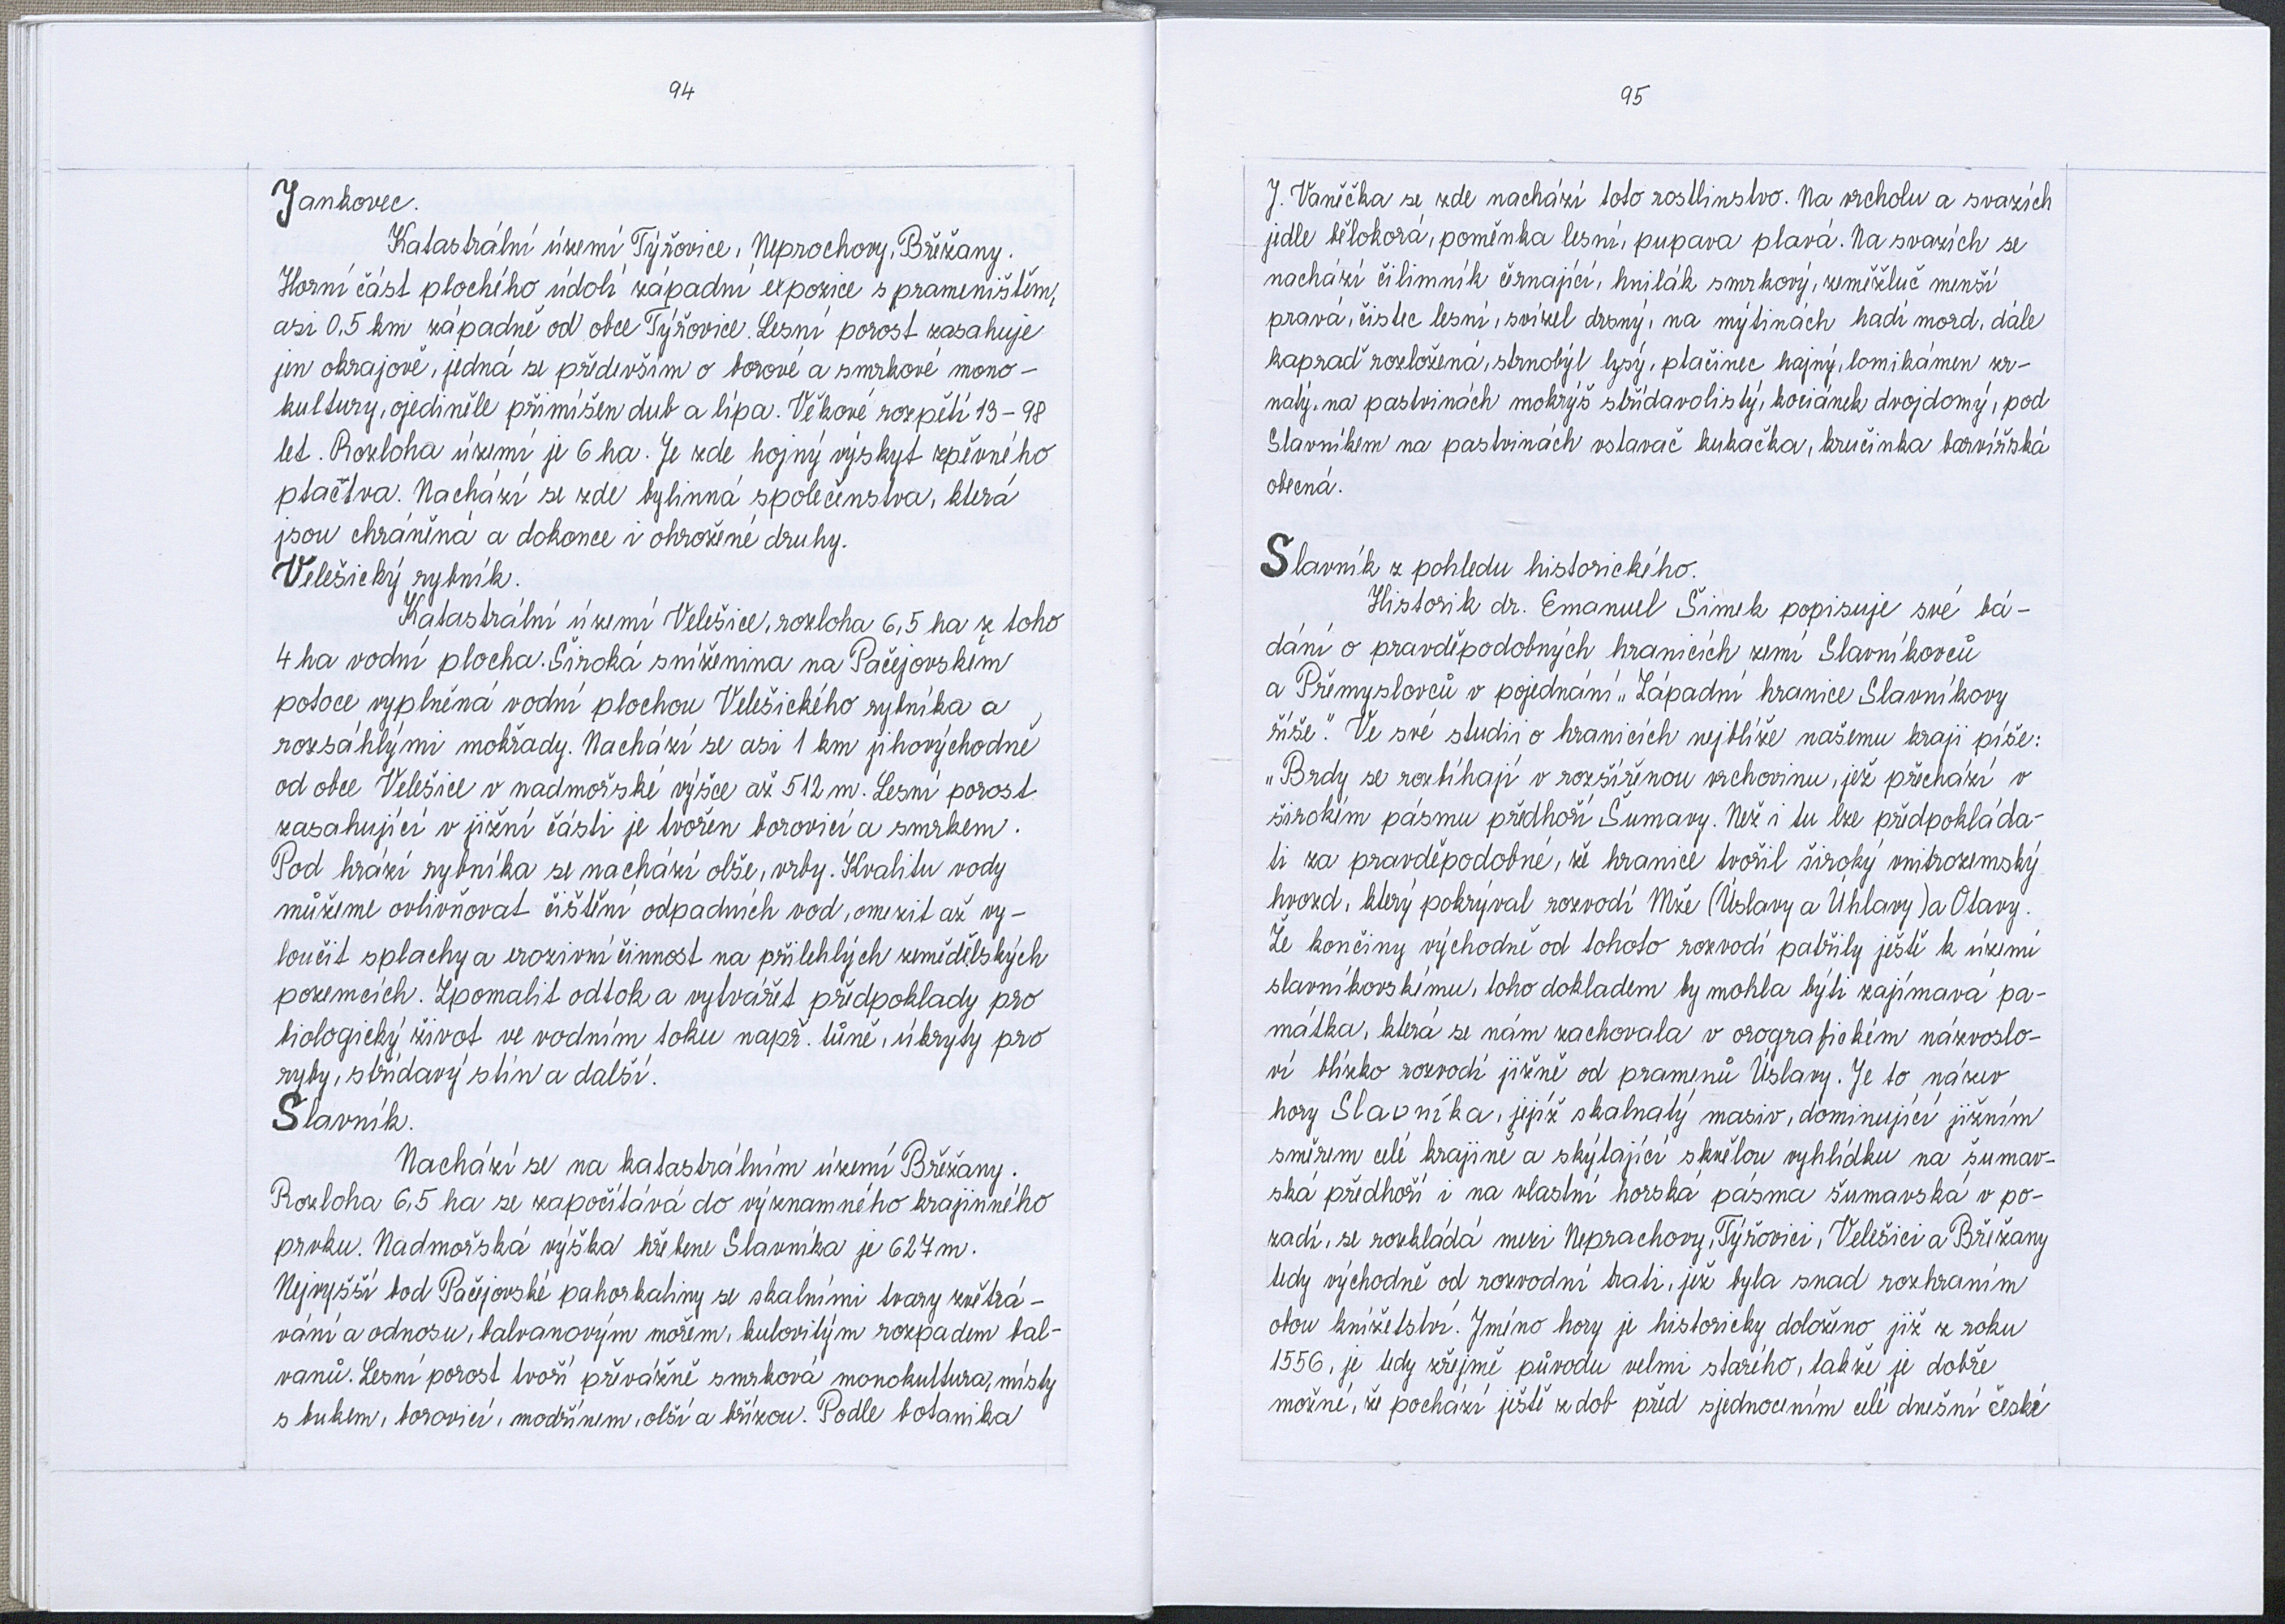 94
Jankovec.
Katastrální území Týřovice, Neprochovy, Břěžany.
Horní část plochého údolí západní expozice s prameništěm,
asi 0,5 km západně od obce Týřovice. Lesní porost zasahuje
jen okrajově, jedná se především o borové a smrkové mono-
kultury, ojediněle přimíšen dub a lípa. Věkové rozpětí 13-98
let. Rozloha území je 6 ha. Je zde hojný výskyt zpěvného
ptačtva. Nachází se zde bylinná společenstva, která
jsou chráněná a dokonce i ohrožené druhy.
Velešický rybník.
Katastrální území Velešice, rozloha 6,5 ha z toho
4 ha vodní plocha. Široká sníženina na Pačejovském
potoce vyplněná vodní plochou Velešického rybníka a
rozsáhlými mokřady. Nachází se asi 1 km jihovýchodně
od obce Velešice v nadmořské výšce až 512 m. Lesní porost
zasahující v jižní části je tvořen borovicí a smrkem.
Pod hrází rybníka se nachází olše, vrby. Kvalitu vody
můžeme ovlivňovat čištění odpadních vod, omezit až vy-
loučit splachy a erozivní činnost na přilehlých zemědělských
pozemcích. Zpomalit odtok a vytvářet předpoklady pro
biologický život ve vodním toku např. tůně, úkryty pro
ryby, střídavý stín a další.
Slavník.
Nachází se na katastrálním území Břěžany.
Rozloha 6,5 ha se započítává do významného krajinného
prvku. Nadmořská výška hřebene Slavníka je 627 m.
Nejvyšší bod Pačejovské pahorkatiny se skalními tvary zvětrá-
vání a odnosu, balvanovým mořem, kulovitým rozpadem bal-
vanů. Lesní porost tvoří převážně smrková monokultura, místy
s bukem, borovicí, modřínem, olší a břízou. Podle botanika
95
J. Vaněčka se zde nachází toto rostlinstvo. Na vrcholu a svazích
jedle bělokorá, poměnka lesní, pupava plavá. Na svazích se
nachází čilimník černající, hnilák smrkový, zeměžluč menší
pravá, čistec lesní, svízel drsný, na mýtinách hadí mord, dále
kapraď rozložená, strnobýl lysý, ptačinec hajný, lomikámen zr-
natý, na pastvinách mokrýš střídavolistý, kociánek dvojdomý, pod
Slavníkem na pastvinách vstavač kukačka, kručinka barvířská
obecná.
Slavník z pohledu historického.
Historik dr. Emanuel Šimek popisuje své bá-
dání o pravděpodobných hranicích zemí Slavníkovců
a Přemyslovců v pojednání „Západní hranice Slavníkovy
říše." Ve své studii o hranicích nejblíže našemu kraji píše:
„Brdy se rozbíhají v rozšířěnou vrchovinu, jež přechází v
širokém pásmu předhoří Šumavy. Než i tu lze předpokláda-
ti za pravděpodobné, že hranice tvořil široký vnitrozemský
hvozd, který pokrýval rozvodí Mže (Úslavy a Úhlavy) a Otavy.
Že končiny východně od tohoto rozvodí patřily ještě k území
slavníkovskému, toho dokladem by mohla býti zajímavá pa-
mátka, která se nám zachovala v orografickém názvoslo-
ví blízko rozvodí jižně od pramenů Úslavy. Je to název
hory Slavníka, jejíž skalnatý masiv, dominující jižním
směrem celé krajině a skýtající skvělou vyhlídku na šumav-
ská předhoří i na vlastní horská pásma šumavská v po-
zadí, se rozkládá mezi Neprachovy, Týřovicí, Velešicí a Břežany
tedy východně od rozvodní trati, jež byla snad rozhraním
obou knížetství. Jméno hory je historicky doloženo již z roku
1556, je tedy zřejmě původu velmi starého, takže je dobře
možné, že pochází ještě z dob před sjednocením celé dnešní české